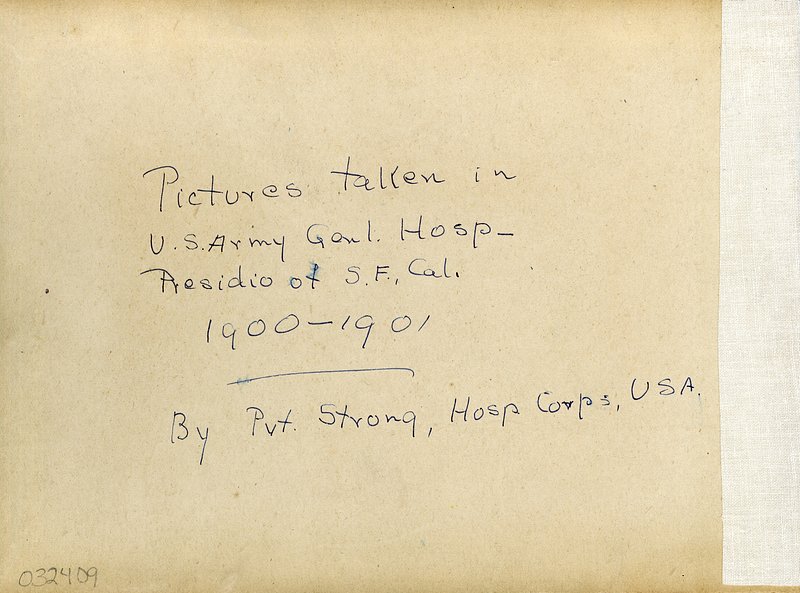 Pictures taken in
U.S. Army Genl. Hosp-
Presidio of S.F., Cal.
1900-1901
By Pvt. Strong, Hosp Corps, USA.
032409